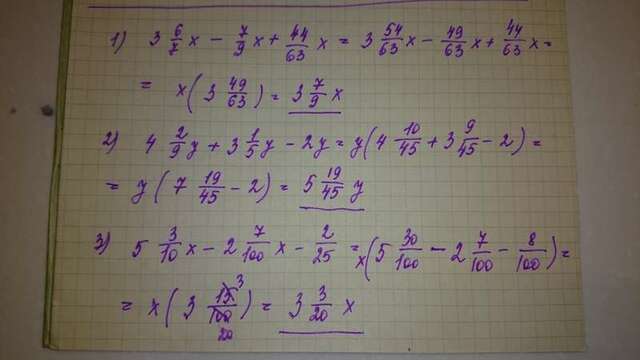 1) 3 6/7 x - 7/9 x + 44/63 x = 3 54/63 x - 49/63 x + 44/63 x =
= x ( 3 49/63 ) = 3 7/9 x
2) 4 2/9 y + 3 1/5 y - 2y = y ( 4 10/45 + 3 9/45 - 2 ) =
= y ( 7 19/45 - 2 ) = 5 19/45 y
3) 5 3/10 x - 2 7/100 x - 2/25 = x ( 5 30/100 - 2 7/100 - 8/100 ) =
= x ( 3 15/100 3/20 ) = 3 3/20 x